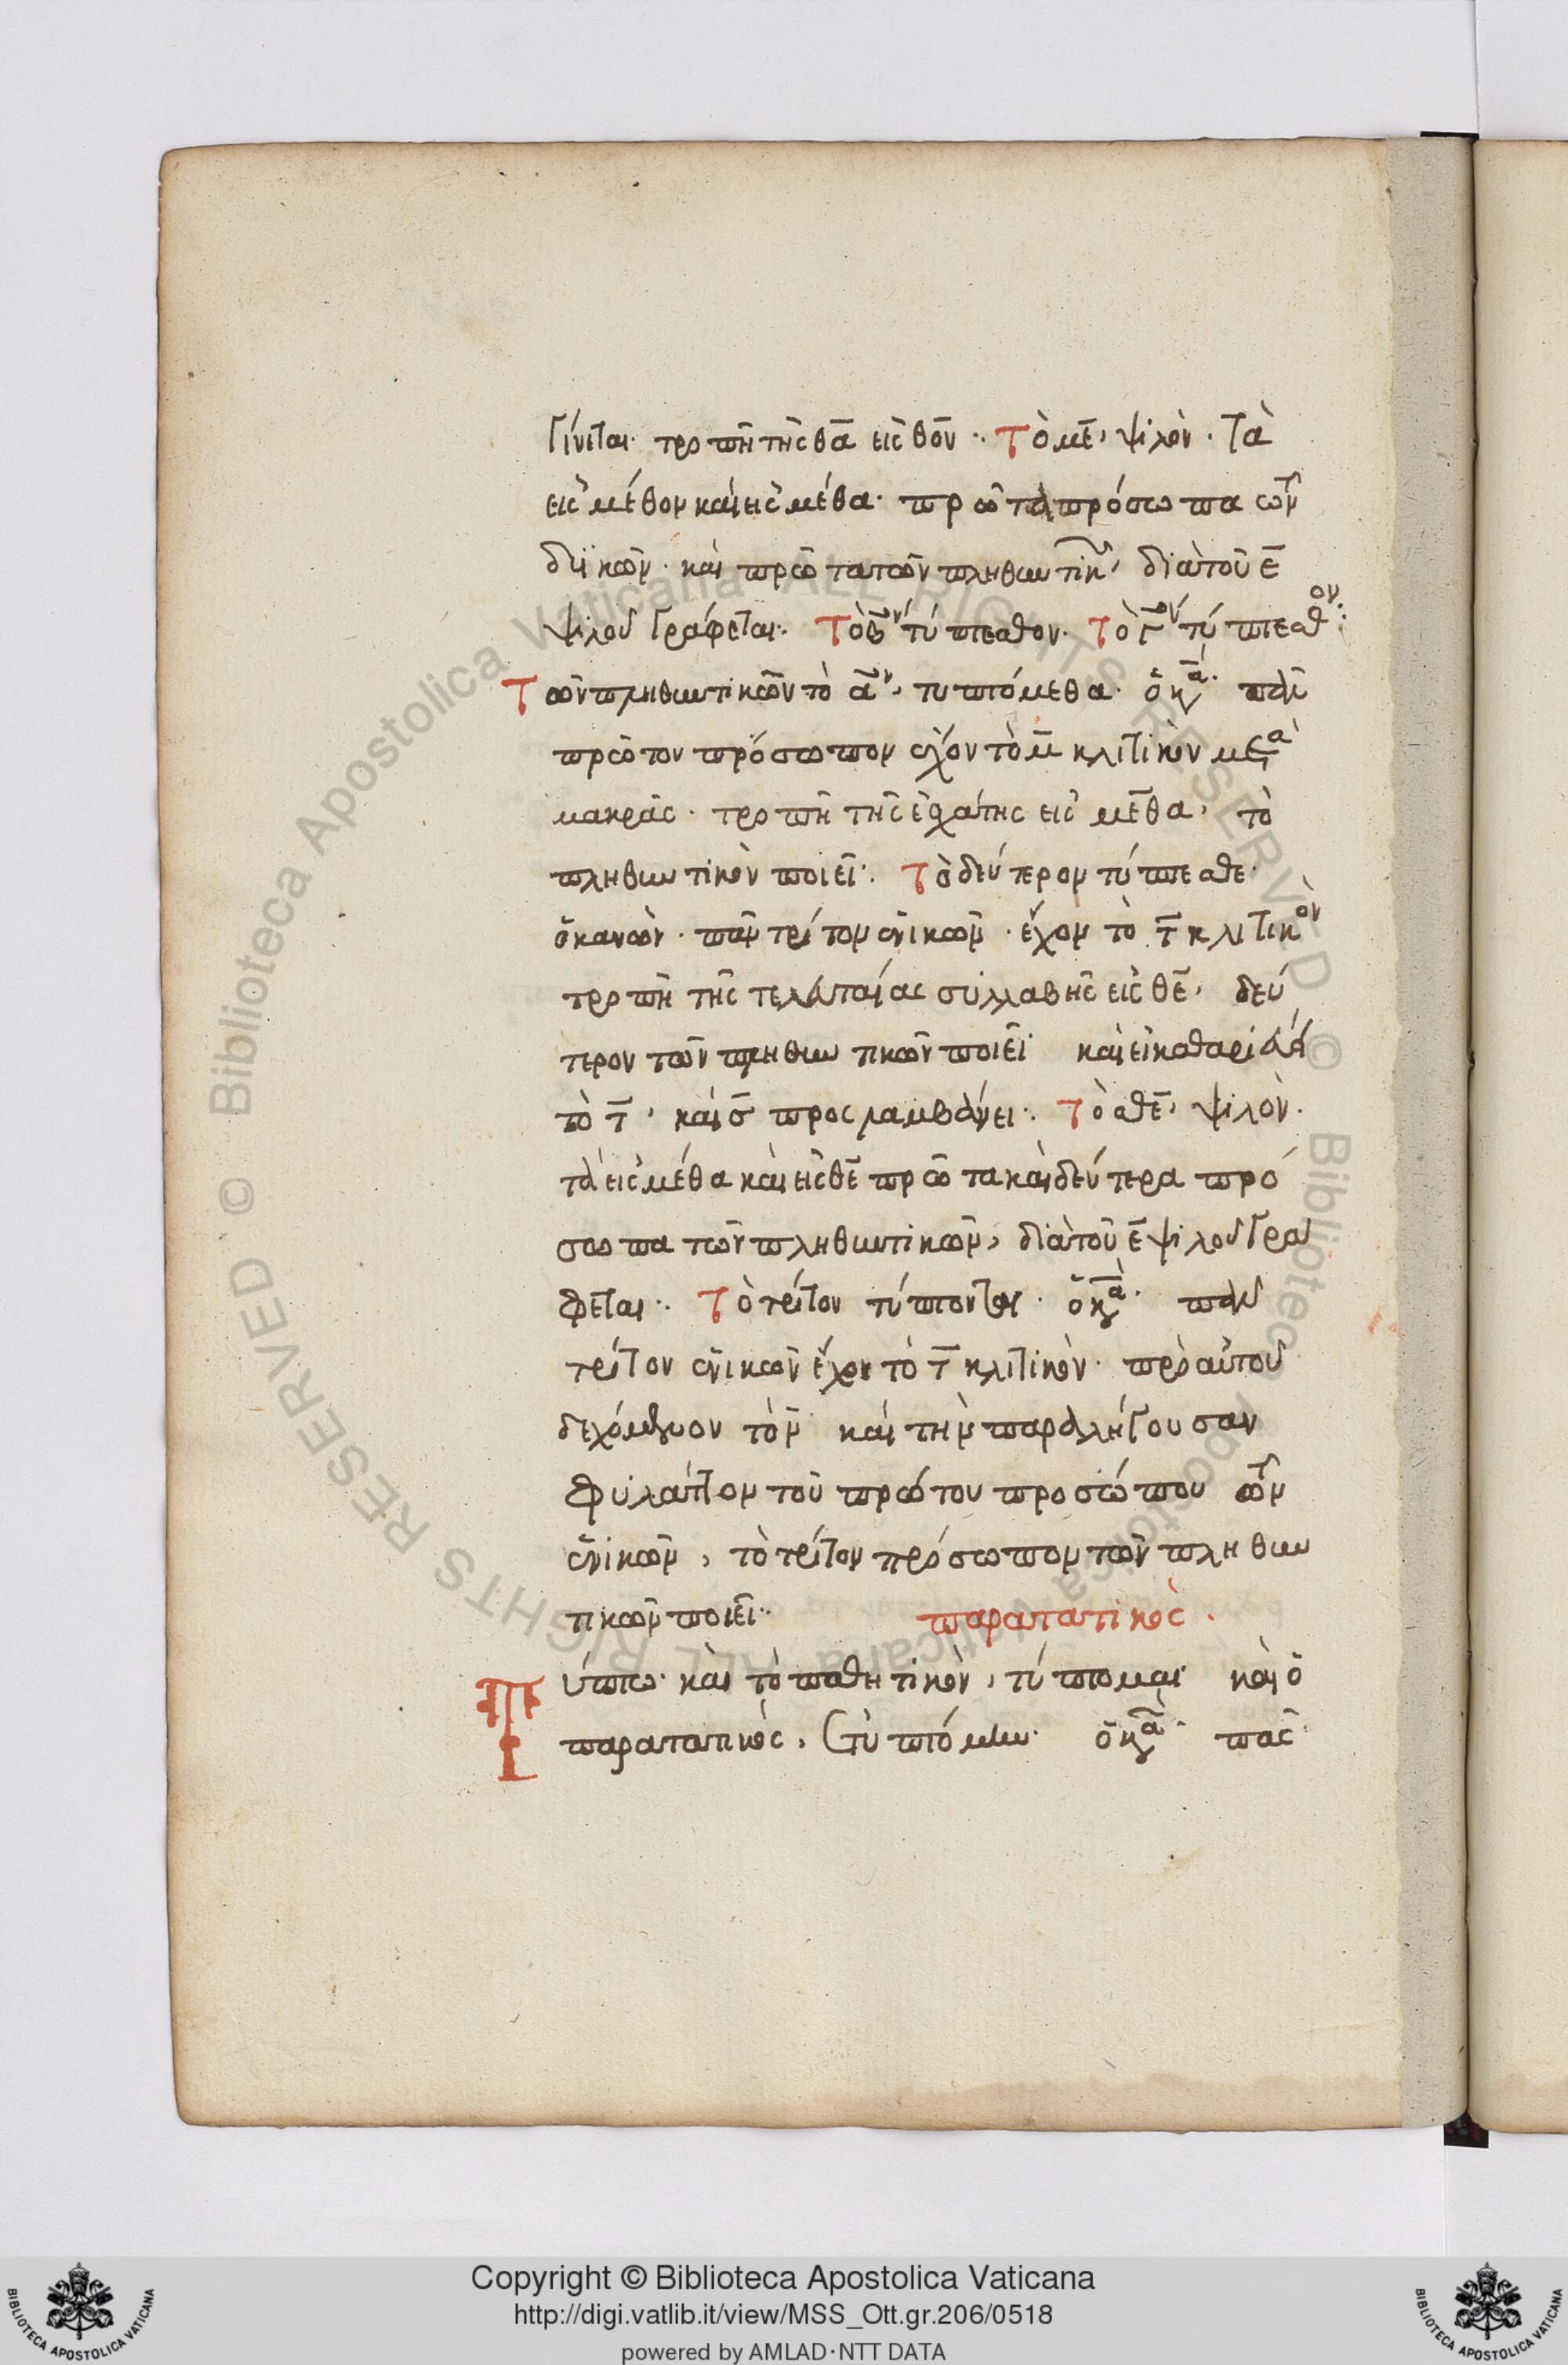 γίνεται· τροπῆ τῆς θα εἰς θον·· Τὸ με, ψιλὸν· τὰ
εἰς μέθον καὶ εἰς μέθα· πρῶτα πρόσωπα τῶν
δυϊκῶν· καὶ πρῶτα τῶν πληθυντικ, διὰ τοῦ ε
ψιλοῦ γράφεται·. Τὸ βον τύπτεσθον· Τὸ γον τύπτεσθον:
Τῶν πληθυντικῶν τὸ αον, τυπτόμεθα· ὁ κα· πᾶν
πρῶτον πρόσωπον ἔχον τὸ μ κλιτικὸν μετὰ
μακρᾶς· τροπῆ τῆς ἐσχάτης εἰς μεθα, τὸ
πληθυντικὸν ποιεῖ·. Τὸ δεύτερον τύπτεσθε·
ὁ κανὼν· πᾶν τρίτον ἑνικῶν· ἔχον τὸ τ κλιτικὸν
τροπῆ τῆς τελευταίας συλλαβῆς εἰς θε, δεύ
τερον τῶν πληθυντικῶν ποιεῖ· καὶ εἰ καθαρεύει
τὸ τ, καὶ σ προσλαμβάνει·. Τὸ σθε, ψιλὸν·
τὰ εἰς μέθα καὶ εἰς θε πρῶτα καὶ δεύτερα πρό
σωπα τῶν πληθυντικῶν, διὰ τοῦ ε ψιλοῦ γρά
φεται·. Τὸ τρίτον τύπτονται· ὁ κα· πᾶν
τρίτον ἑνικῶν ἔχον τὸ τ κλιτικὸν· πρὸ αὐτοῦ
δεχόμενον τὸ ν· καὶ τὴν παραλήγουσαν
φυλάττον τοῦ πρώτου προσώπου τῶν
ἑνικῶν, τὸ τρίτον πρόσωπον τῶν πληθυν
τικῶν ποιεῖ·· παρατατικὸς·
Τύπτω· καὶ τὸ παθητικὸν, τύπτομαι· καὶ ὁ
παρατατικὸς, ἐτυπτόμην· ὁ κα· πᾶς
Copyright © Biblioteca Apostolica Vaticana
http://digi.vatlib.it/view/MSS_Ott.gr.206/0518
powered by AMLAD·NTT DATA